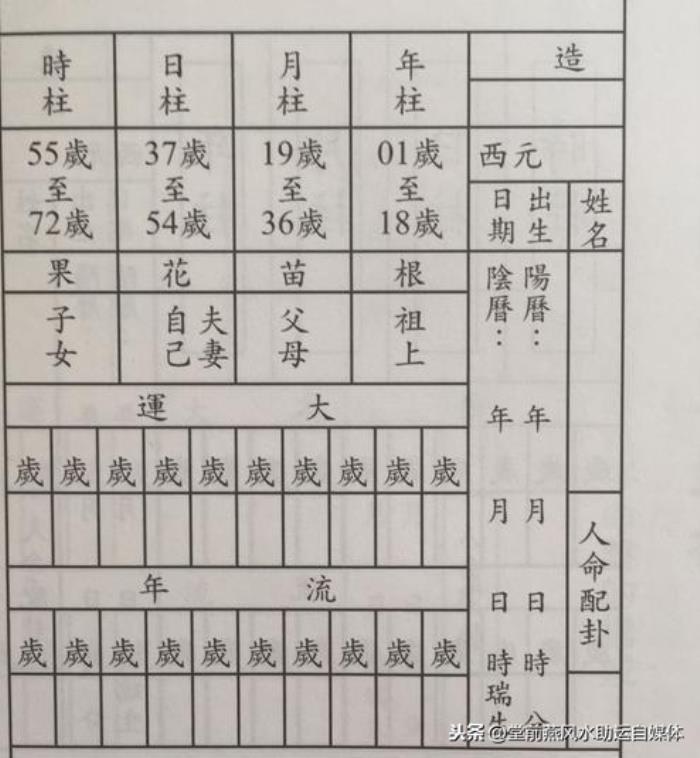 造
年柱
月柱
日柱
時柱
西元
01歲至18歲
19歲至36歲
37歲至54歲
55歲至72歲
姓名
出生日期
根
苗
花
果
祖上
父母
夫妻
自己
子女
陽曆：年月日時
陰曆：年月日時瑞生
大運
歲 歲 歲 歲 歲 歲 歲 歲 歲 歲
人命配卦
流年
歲 歲 歲 歲 歲 歲 歲 歲 歲 歲
头条 @堂前燕风水助运自媒体